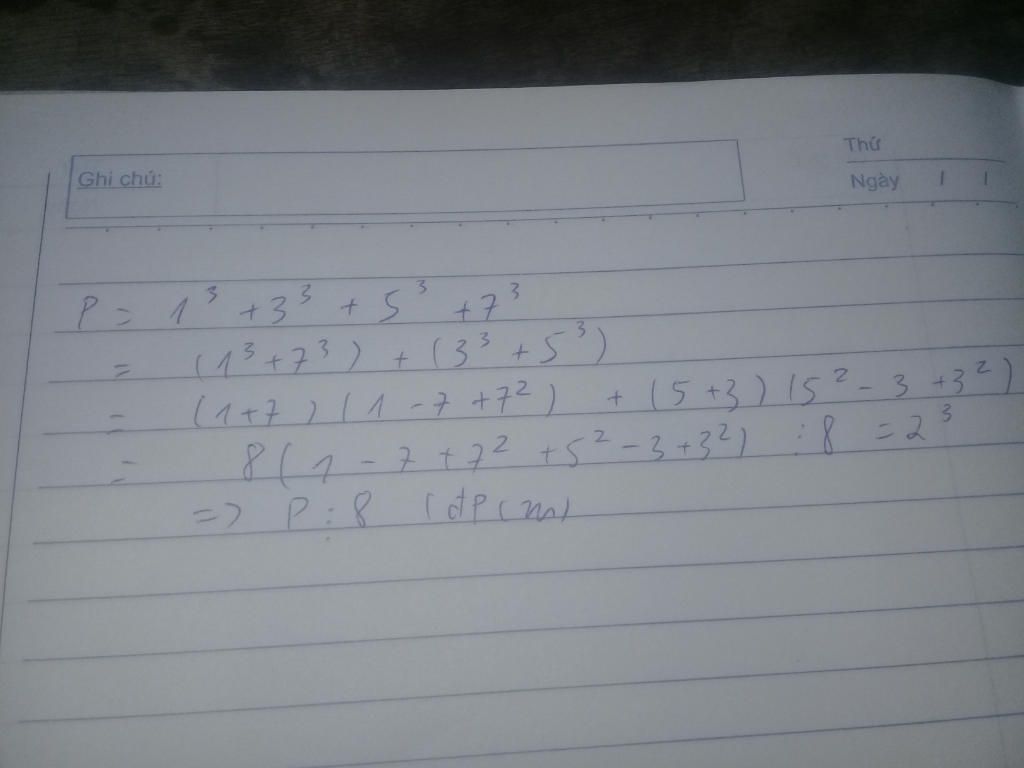 Thứ
Ghi chú:
Ngày / /
P = 1³ + 3³ + 5³ + 7³
= (1³ + 7³) + (3³ + 5³)
= (1+7)(1 - 7 + 7²) + (5 + 3)(5² - 3 + 3²)
= 8(1 - 7 + 7² + 5² - 3 + 3²) ⋮ 8 = 2³
=> P ⋮ 8 (đpcm)